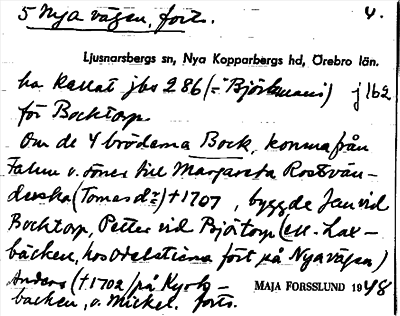 5 Nya vägen, forts. 4.
Ljusnarsbergs sn, Nya Kopparbergs hd, Örebro län.
ha kallat jbs 286 (= Björkmans) j 162
för Bocktorp.
Om de 4 bröderna Bock, komna från
Falun o. söner till Margareta Rostvän-
derska (Tomas dr) † 1707, byggde Jan vid
Bocktorp, Petter vid Björtorp (el. Lax-
bäcken, hos Odelstierna fört på Nya vägen)
Anders († 1702 / på Kyrk-
backen, o. Mickel. forts.
MAJA FORSSLUND 1948